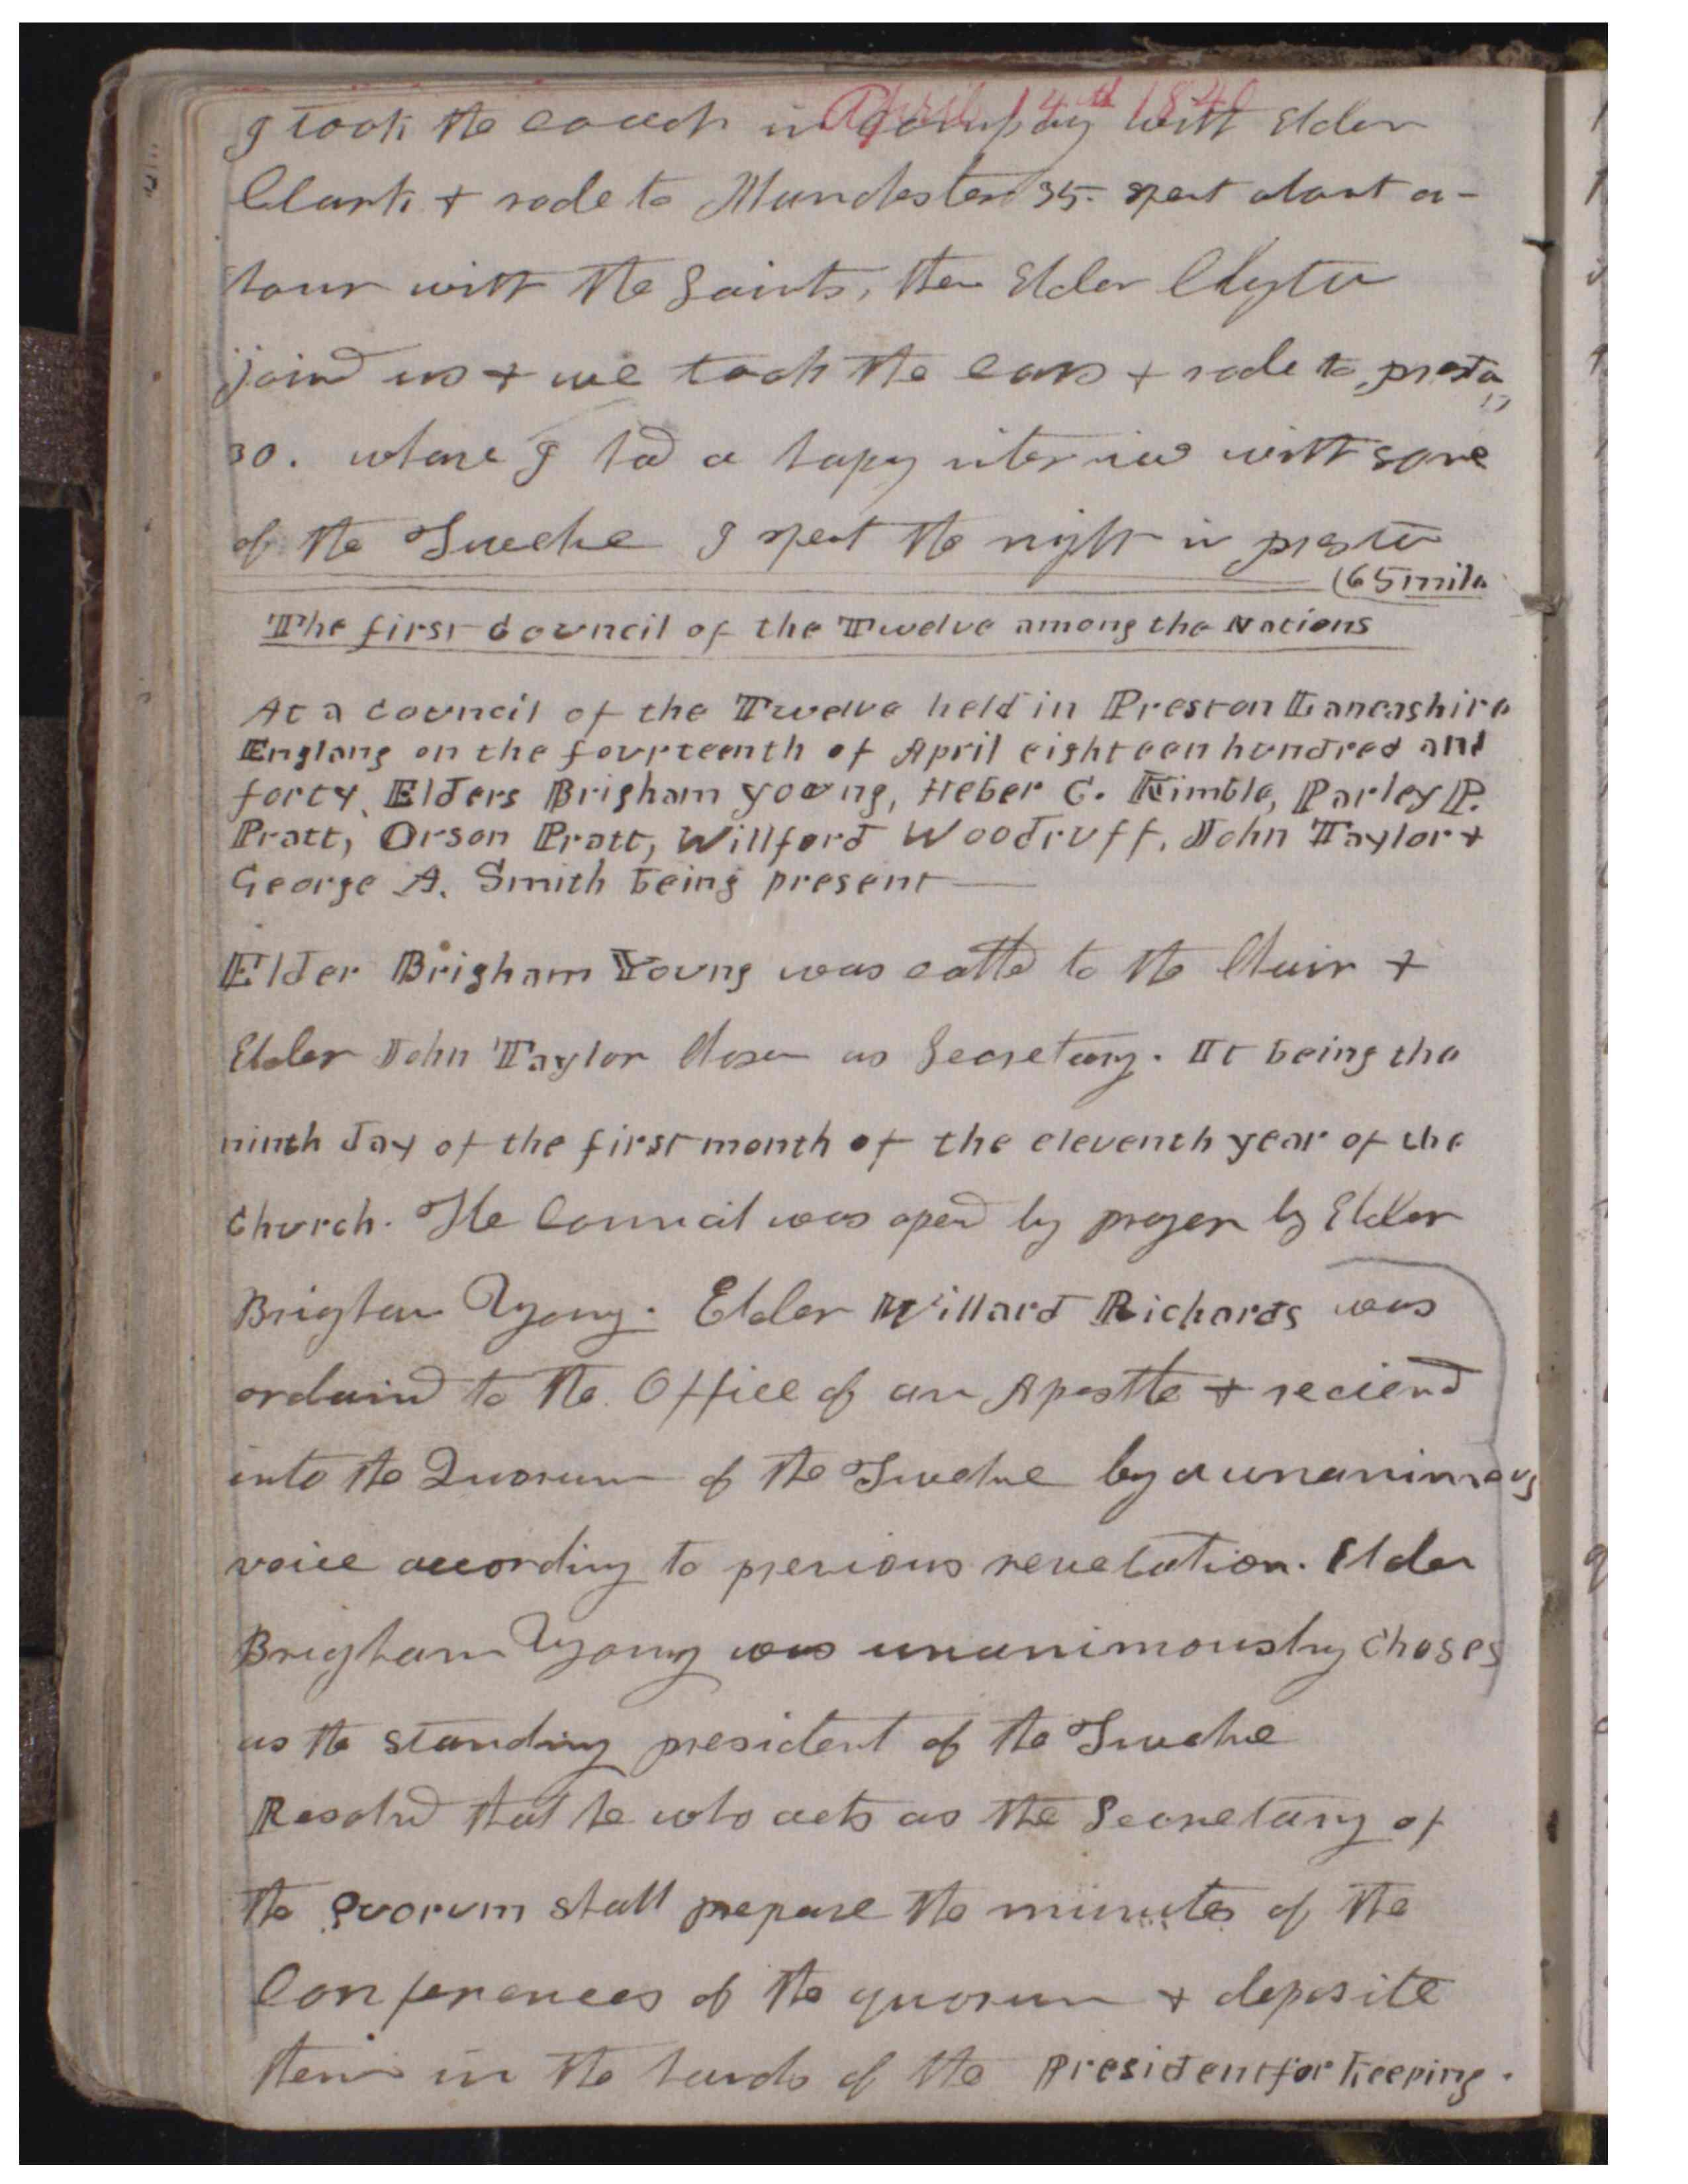 April 14th 1840
I took the coach in company with Elder
Clark + rode to Manchester 35. spent about a-
hour with the Saints, then Elder Clayton
joind us + we took the cars + rode to preston
30. whare I had a hapy interview with some
of the Twelve I spent the night in preston
(65 mile
The first Council of the Twelve among the Nations
At a council of the Twelve held in Preston Lancashire
England on the fourteenth of April eighteen hundred and
forty, Elders Brigham Young, Heber C. Kimble, Parley P.
Pratt, Orson Pratt, Willford Woodruff, John Taylor +
George A. Smith being present
Elder Brigham Young was called to the Chair +
Elder John Taylor Chosen as Secretary. It being the
ninth day of the first month of the eleventh year of the
Church. The Council was opend by prayer by Elder
Brigham Young. Elder Willard Richards was
ordaind to the Office of an Apostle + recievd
into the Quorum of the Twelve by a unanimous
voice according to previous revelation. Elder
Brigham Young was unanimously choses
as the standing president of the Twelve
Resolvd that he who acts as the Secretary of
the Quorum shall prepare the minutes of the
Conferences of the quorum + deposite
them in the hands of the President for keeping.